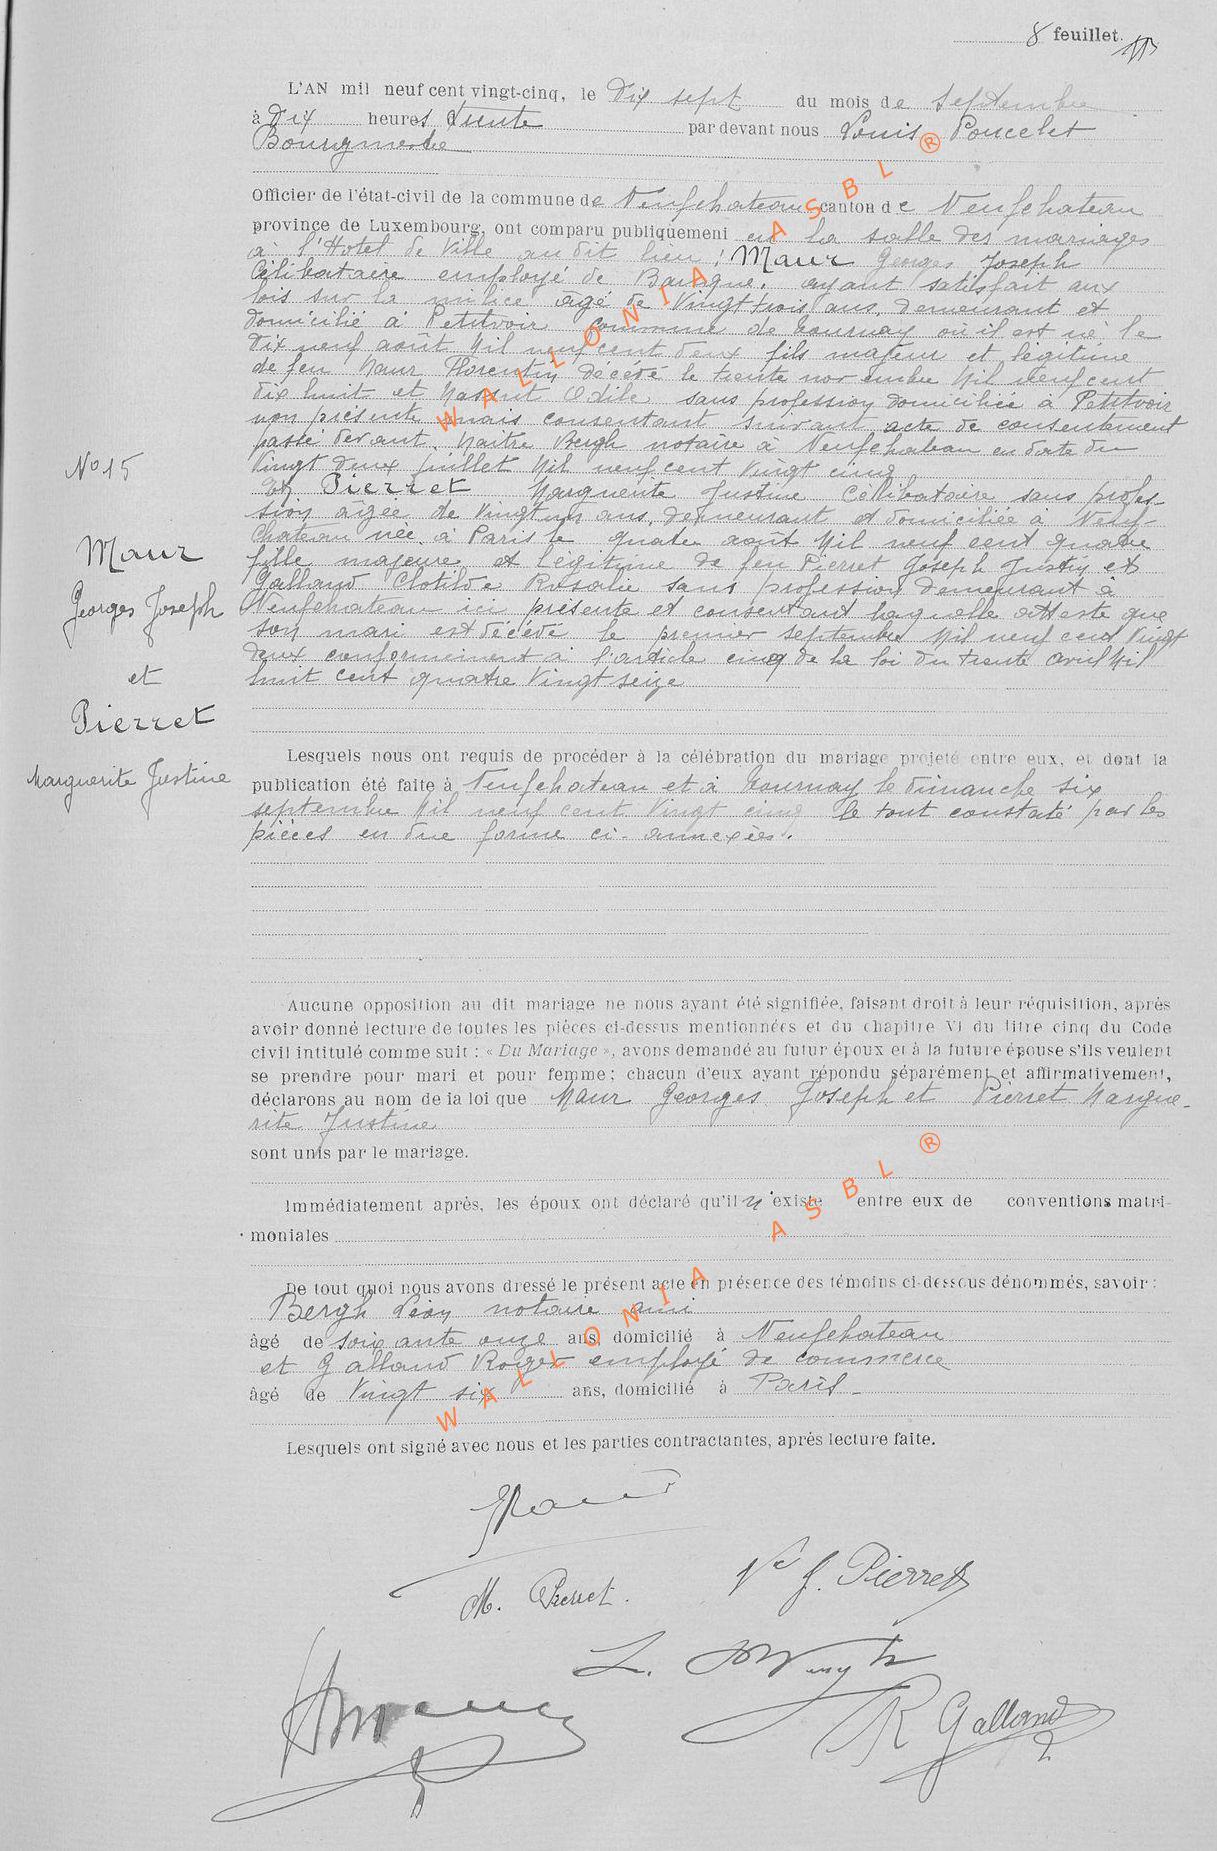 8 feuillet.
L'AN mil neuf cent vingt-cinq, le Dix sept du mois de Septembre
à Dix heures trente par devant nous Louis Poncelet
Bourgmestre
Officier de l'état-civil de la commune de Neufchateau canton de Neufchateau
province de Luxembourg, ont comparu publiquement en la salle des mariages
à l'Hotel de Ville au dit lieu : Maur Georges Joseph
Célibataire employé de Banque, ayant satisfait aux
lois sur la milice agé de Vingt trois ans, demeurant et
domicilié à Petitvoir commune de Tournay où il est né le
Dix neuf août Mil neuf cent deux fils majeur et légitime
de feu Maur Florentin décédé le trente novembre Mil neuf cent
dix huit et Massut Odile sans profession domiciliée à Petitvoir
non présente mais consentant suivant acte de consentement
passé devant Maître Bergh notaire à Neufchateau en date du
Vingt deux juillet Mil neuf cent Vingt cinq
Et Pierret Marguerite Justine Célibataire sans profes-
sion âgée de vingt un ans, demeurant et domiciliée à Neuf-
Chateau née à Paris le quatre août Mil neuf cent quatre
fille majeure et légitime de feu Pierret Joseph Justin et
Galland Clotilde Rosalie sans profession demeurant à
Neufchateau ici présente et consentant laquelle atteste que
son mari est décédé le premier septembre Mil neuf cent Vingt
deux conformément à l'article cinq de la loi du trente avril Mil
huit cent quatre Vingt seize
No 15
Maur
Georges Joseph
et
Pierret
Marguerite Justine
Lesquels nous ont requis de procéder à la célébration du mariage projeté entre eux, et dont la
publication été faite à Neufchateau et à Tournay le dimanche six
septembre Mil neuf cent Vingt cinq le tout constaté par les
pièces en due forme ci-annexées.
Aucune opposition au dit mariage ne nous ayant été signifiée, faisant droit à leur réquisition, après
avoir donné lecture de toutes les pièces ci-dessus mentionnées et du chapitre VI du titre cinq du Code
civil intitulé comme suit : « Du Mariage », avons demandé au futur époux et à la future épouse s'ils veulent
se prendre pour mari et pour femme ; chacun d'eux ayant répondu séparément et affirmativement,
déclarons au nom de la loi que Maur Georges Joseph et Pierret Margue-
rite Justine
sont unis par le mariage.
Immédiatement après, les époux ont déclaré qu'il n'existe entre eux de conventions matri-
moniales
De tout quoi nous avons dressé le présent acte en présence des témoins ci-dessous dénommés, savoir :
Bergh Léon notaire ami
âgé de soixante onze ans, domicilié à Neufchateau
et Galland Roger employé de commerce
âgé de Vingt six ans, domicilié à Paris
Lesquels ont signé avec nous et les parties contractantes, après lecture faite.
M. Pierret.
Ve J. Pierret
R Galland
WALLONIA ASBL ®
WALLONIA ASBL ®